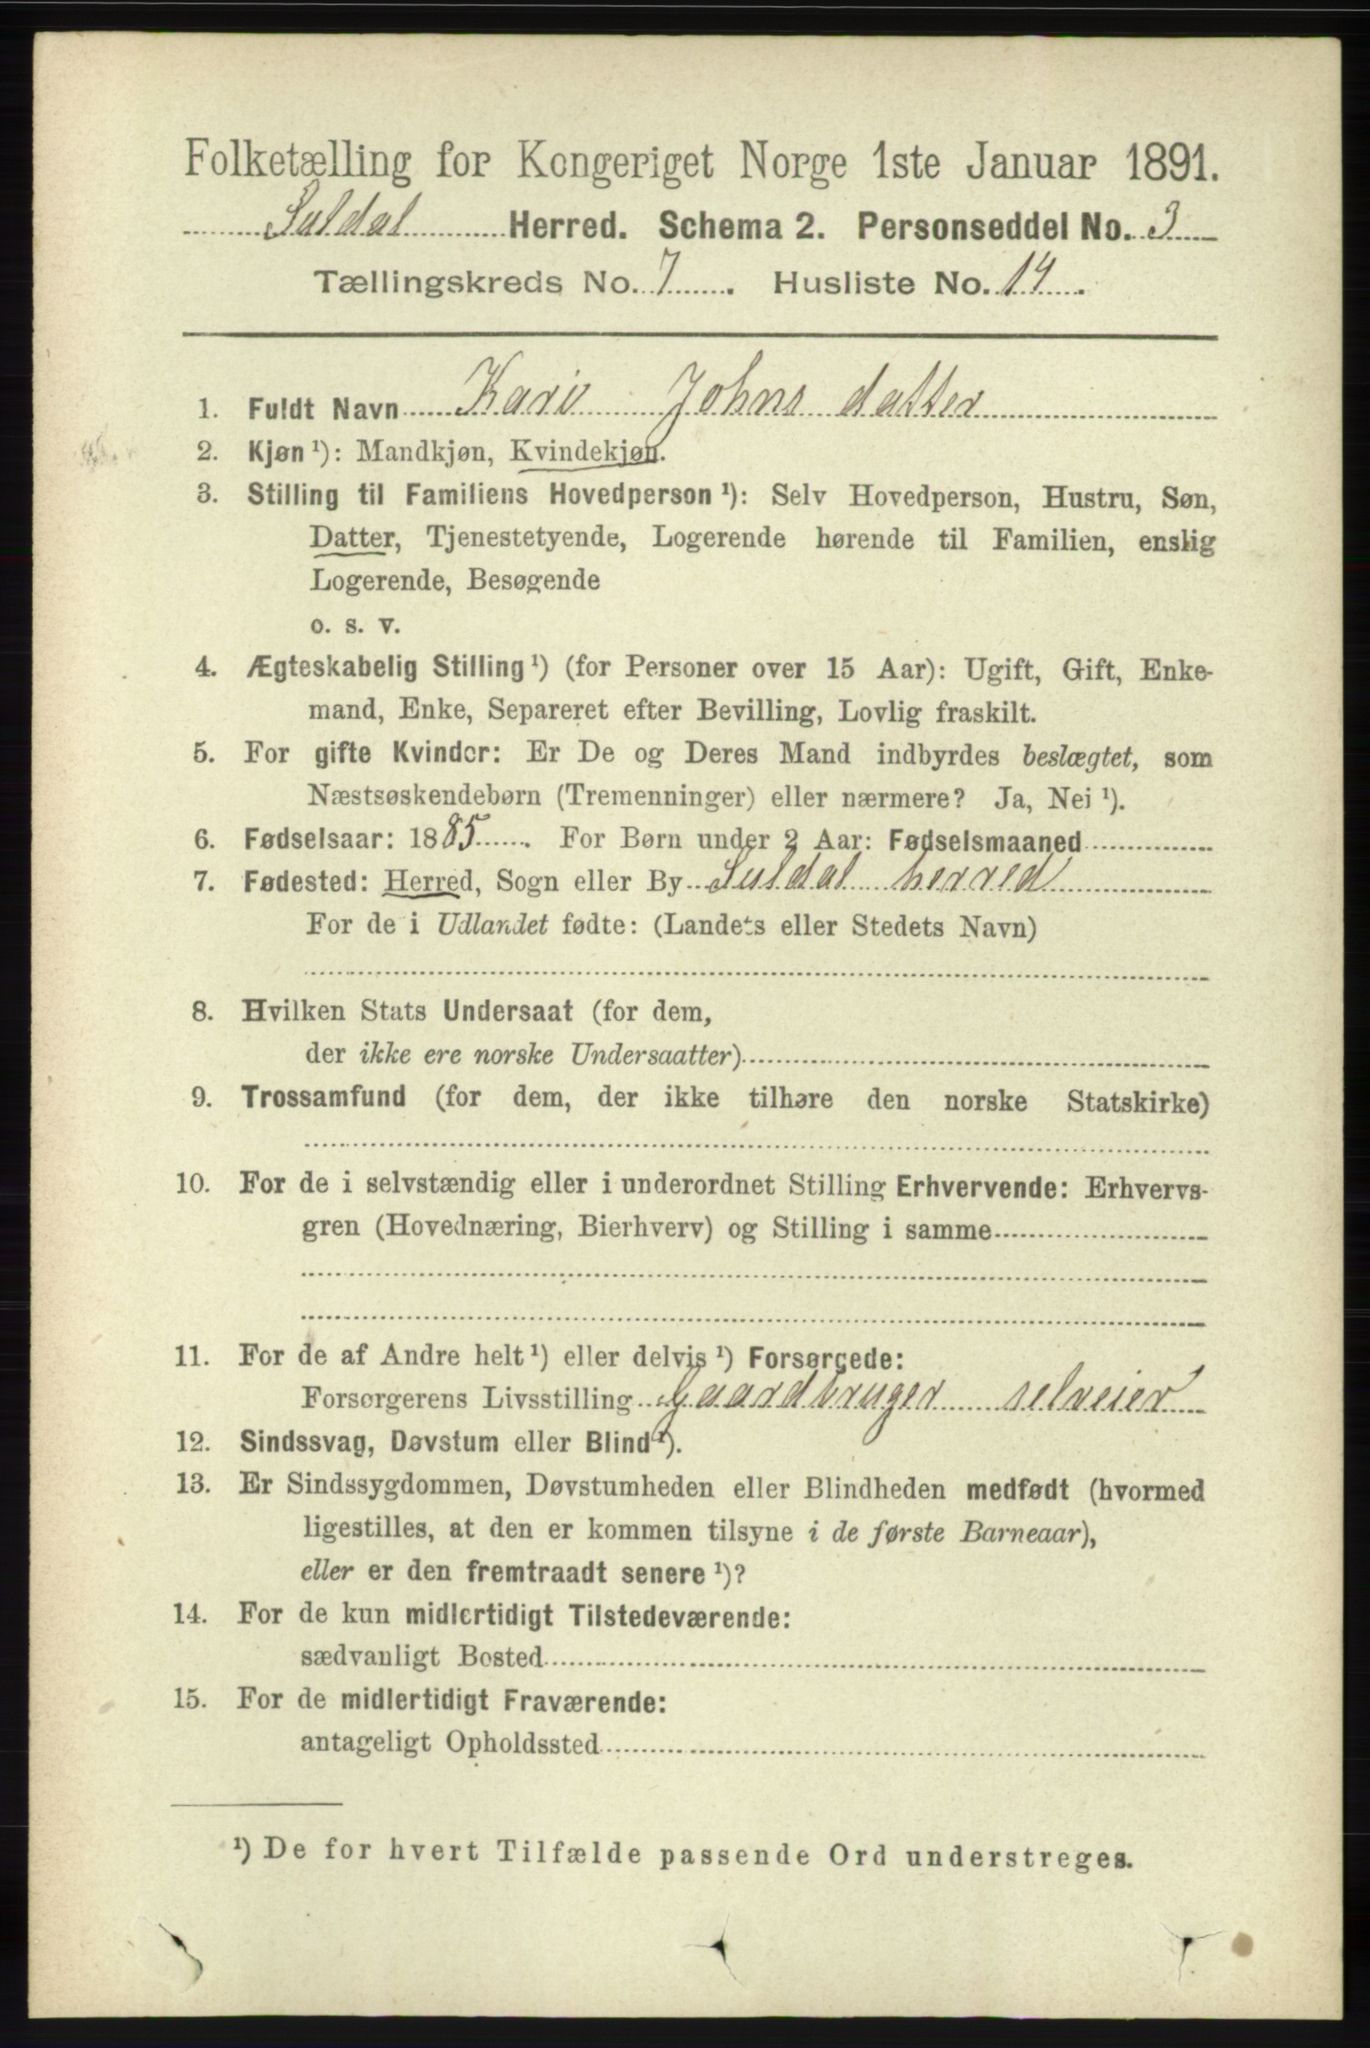 Folketælling for Kongeriget Norge 1ste Januar 1891.
Suldal Herred. Schema 2. Personseddel No. 3
Tællingskreds No. 7. Husliste No. 14.
1. Fuldt Navn Kari Johnsdatter
2. Kjøn ¹): Mandkjøn, Kvindekjøn.
3. Stilling til Familiens Hovedperson ¹): Selv Hovedperson, Hustru, Søn,
Datter, Tjenestetyende, Logerende hørende til Familien, enslig
Logerende, Besøgende
o. s. v.
4. Ægteskabelig Stilling ¹) (for Personer over 15 Aar): Ugift, Gift, Enke-
mand, Enke, Separeret efter Bevilling, Lovlig fraskilt.
5. For gifte Kvinder: Er De og Deres Mand indbyrdes beslægtet, som
Næstsøskendebørn (Tremenninger) eller nærmere? Ja, Nei ¹).
6. Fødselsaar: 1885. For Børn under 2 Aar: Fødselsmaaned
7. Fødested: Herred, Sogn eller By Suldal herred
For de i Udlandet fødte: (Landets eller Stedets Navn)
8. Hvilken Stats Undersaat (for dem,
der ikke ere norske Undersaatter)
9. Trossamfund (for dem, der ikke tilhøre den norske Statskirke)
10. For de i selvstændig eller i underordnet Stilling Erhvervende: Erhvervs-
gren (Hovednæring, Bierhverv) og Stilling i samme
11. For de af Andre helt ¹) eller delvis ¹) Forsørgede:
Forsørgerens Livsstilling Gaardbruger selveier
12. Sindssvag, Døvstum eller Blind ¹).
13. Er Sindssygdommen, Døvstumheden eller Blindheden medfødt (hvormed
ligestilles, at den er kommen tilsyne i de første Barneaar),
eller er den fremtraadt senere ¹)?
14. For de kun midlertidigt Tilstedeværende:
sædvanligt Bosted
15. For de midlertidigt Fraværende:
antageligt Opholdssted
¹) De for hvert Tilfælde passende Ord understreges.